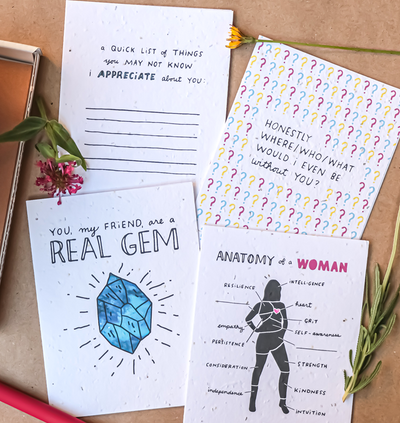 a QUICK LIST of THINGS
you MAY NOT KNOW
i APPRECiATE about YOU:
HONESTLY
WHERE/WHO/WHAT
WOULD i EVEN BE
without YOU?
YOU, my FRiEND, are a
REAL GEM
ANATOMY of a WOMAN
RESILIENCE
INTELLIGENCE
heart
GRIT
empathy
SELF-awareness
PERSISTENCE
CONSIDERATION
STRENGTH
independence
KINDNESS
INTUITION